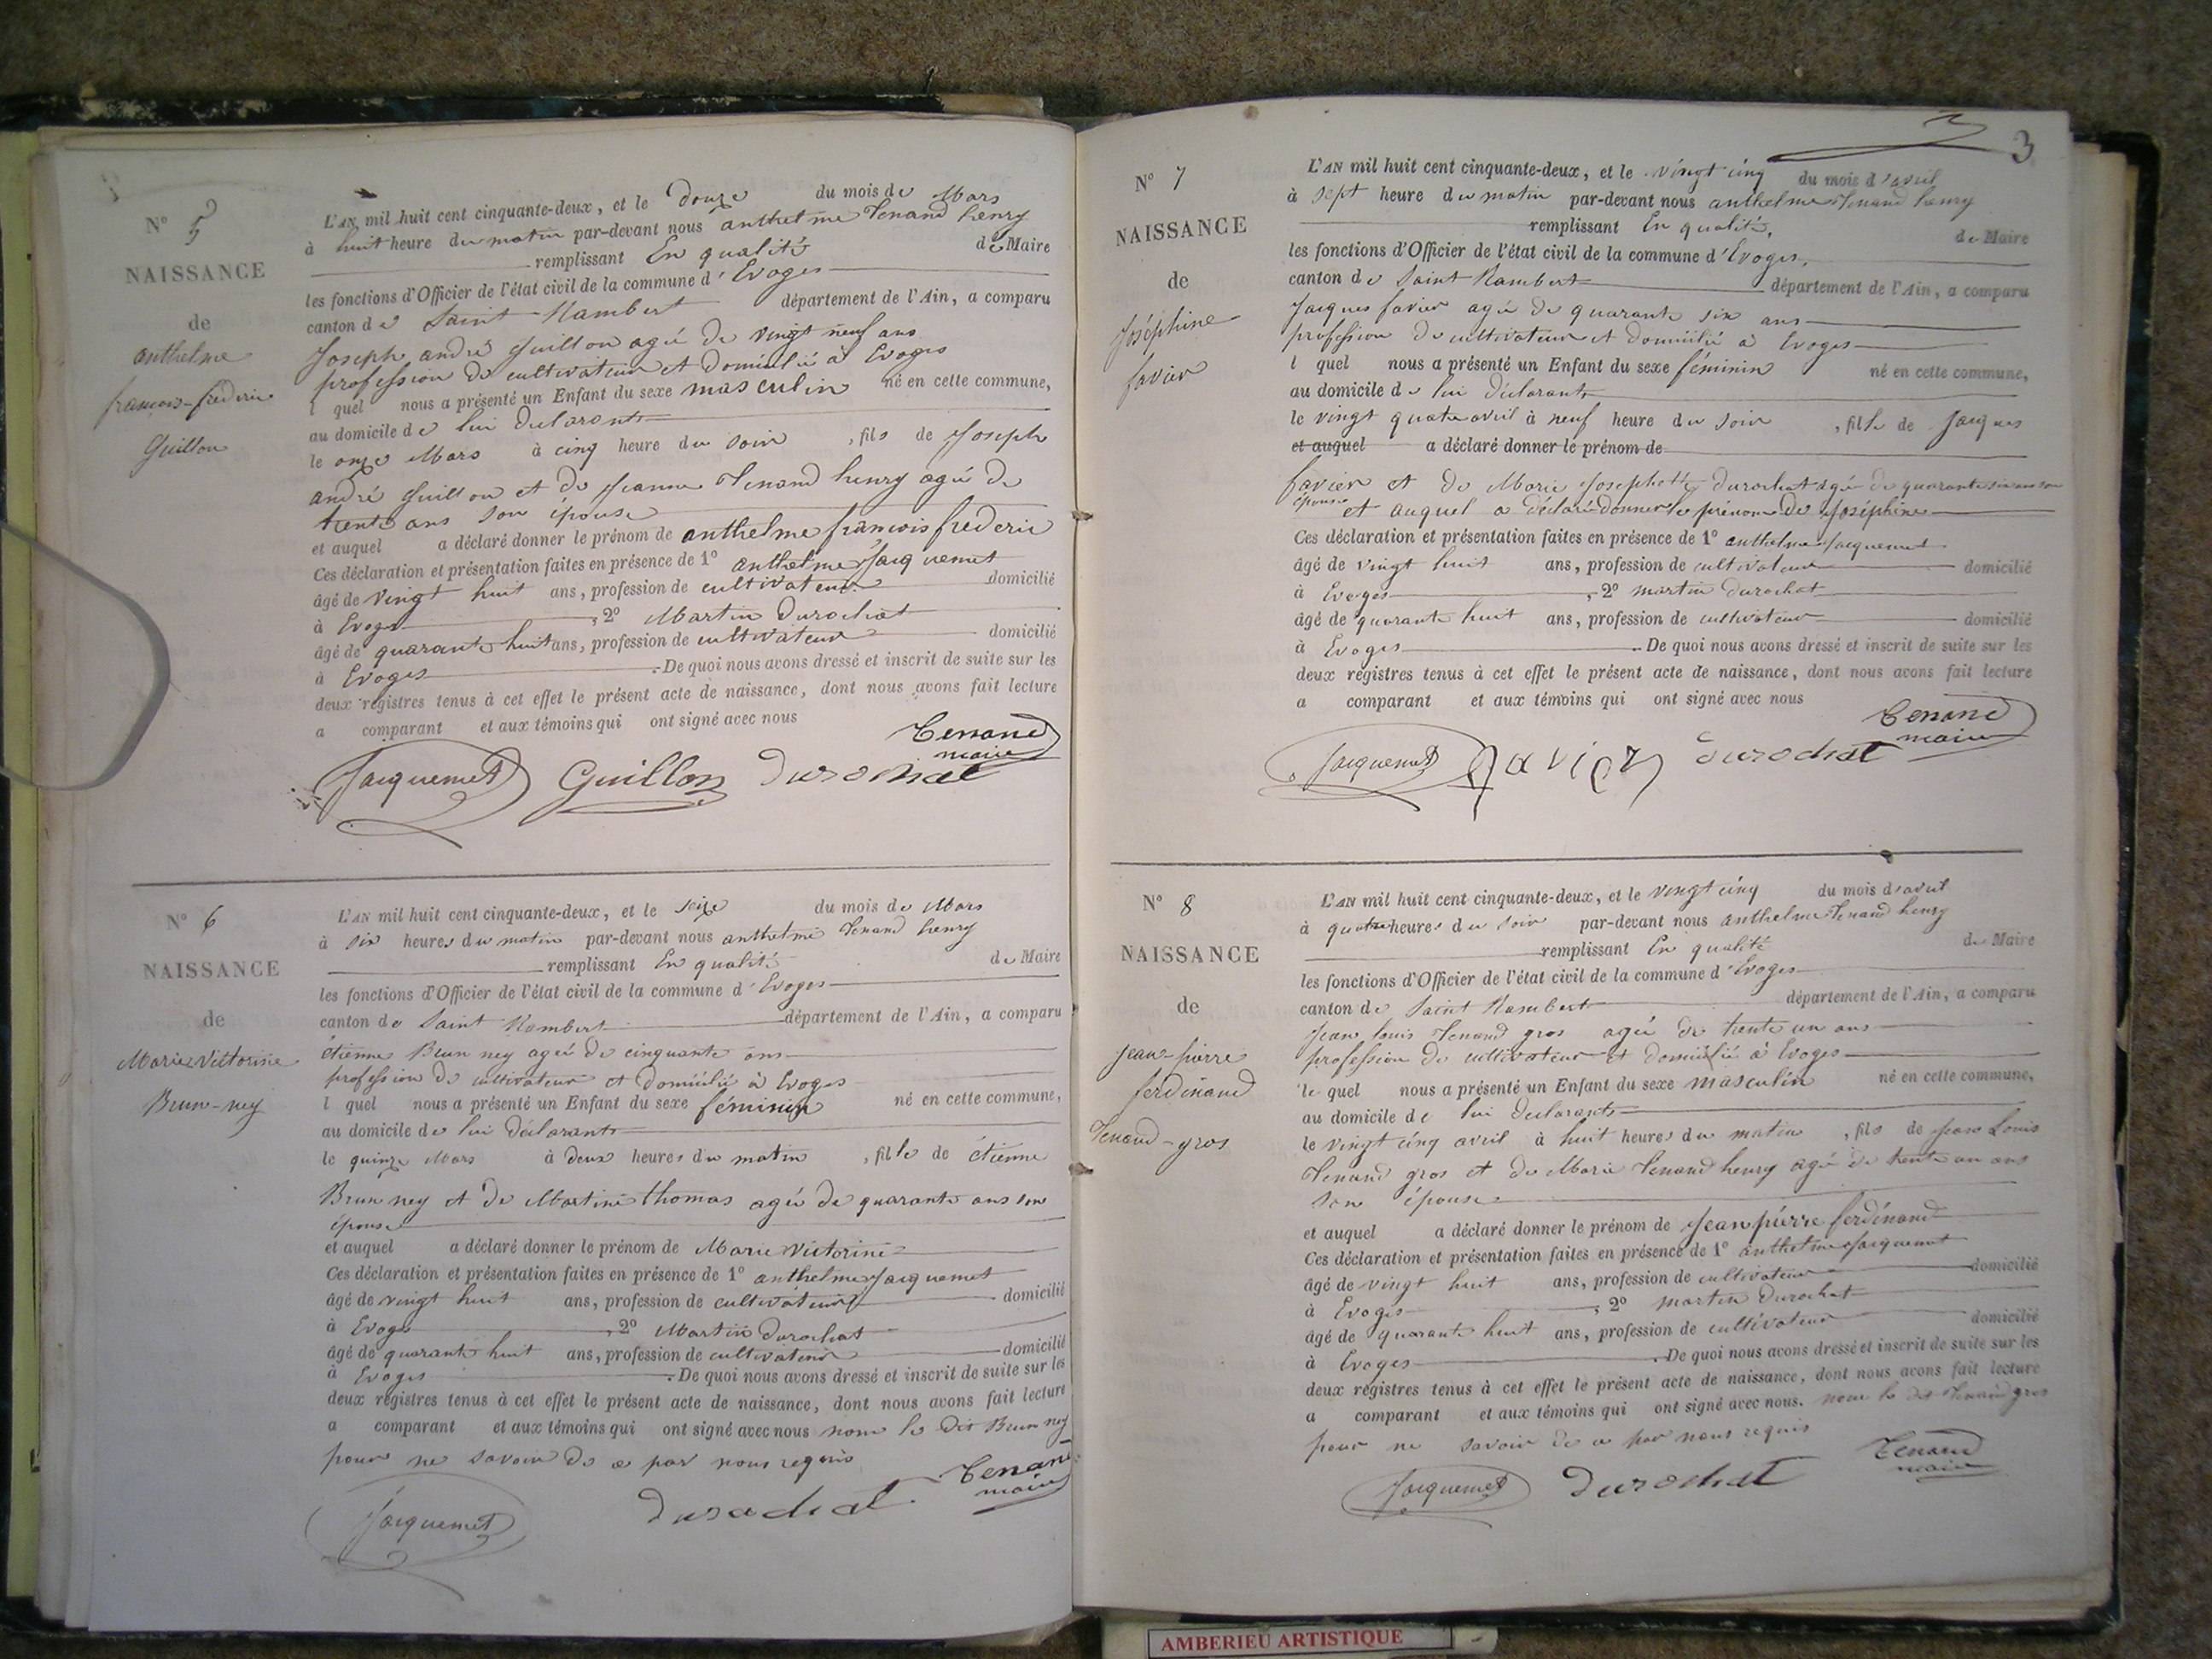 N° 5
NAISSANCE
de
anthelme
françois-frederic
Guillon
L'AN mil huit cent cinquante-deux, et le douze du mois de Mars
à huit heure du matin par-devant nous anthelme Tenand henry
remplissant En qualité de Maire
les fonctions d'Officier de l'état civil de la commune d'Evoges
canton de Saint Rambert département de l'Ain, a comparu
Joseph andré Guillon agé de vingt neuf ans
profession de cultivateur et domicilié à Evoges
l quel nous a présenté un Enfant du sexe masculin né en cette commune,
au domicile de lui déclarant
le onze Mars à cinq heure du soir, fils de Joseph
andré Guillon et de Jeanne Tenand henry agée de
trente ans son épouse
et auquel a déclaré donner le prénom de anthelme françois frederic
Ces déclaration et présentation faites en présence de 1° anthelme Jacquemet
âgé de vingt huit ans, profession de cultivateur domicilié
à Evoges, 2° Martin Durochat
âgé de quarante huit ans, profession de cultivateur domicilié
à Evoges. De quoi nous avons dressé et inscrit de suite sur les
deux registres tenus à cet effet le présent acte de naissance, dont nous avons fait lecture
a comparant et aux témoins qui ont signé avec nous
Tenand
maire
Jacquemet Guillon Durochat
N° 6
NAISSANCE
de
Marie Victorine
Brun-ney
L'AN mil huit cent cinquante-deux, et le seize du mois de Mars
à six heures du matin par-devant nous anthelme Tenand henry
remplissant En qualité de Maire
les fonctions d'Officier de l'état civil de la commune d'Evoges
canton de Saint Rambert département de l'Ain, a comparu
étienne Brun ney agé de cinquante ans
profession de cultivateur et domicilié à Evoges
l quel nous a présenté un Enfant du sexe féminin né en cette commune,
au domicile de lui déclarant
le quinze Mars à deux heures du matin, fille de étienne
Brun ney et de Martine thomas agée de quarante ans son
épouse
et auquel a déclaré donner le prénom de Marie Victorine
Ces déclaration et présentation faites en présence de 1° anthelme Jacquemet
âgé de vingt huit ans, profession de cultivateur domicilié
à Evoges, 2° Martin Durochat
âgé de quarante huit ans, profession de cultivateur domicilié
à Evoges. De quoi nous avons dressé et inscrit de suite sur les
deux registres tenus à cet effet le présent acte de naissance, dont nous avons fait lecture
a comparant et aux témoins qui ont signé avec nous non le dit Brun ney
pour ne savoir de ce par nous requis
Tenand
maire
Jacquemet Durochat
3
N° 7
NAISSANCE
de
Joséphine
favier
L'AN mil huit cent cinquante-deux, et le vingt cinq du mois d'avril
à sept heure du matin par-devant nous anthelme Tenand henry
remplissant En qualité, de Maire
les fonctions d'Officier de l'état civil de la commune d'Evoges,
canton de Saint Rambert département de l'Ain, a comparu
Jacques favier agé de quarante six ans
profession de cultivateur et domicilié à Evoges
l quel nous a présenté un Enfant du sexe féminin né en cette commune,
au domicile de lui déclarant
le vingt quatre avril à neuf heure du soir, fille de Jacques
et auquel a déclaré donner le prénom de
favier et de Marie Josephette Durochat agé de quarante six ans son
épouse et auquel a déclaré donner le prénom de Joséphine
Ces déclaration et présentation faites en présence de 1° anthelme Jacquemet
âgé de vingt huit ans, profession de cultivateur domicilié
à Evoges, 2° martin Durochat
âgé de quarante huit ans, profession de cultivateur domicilié
à Evoges. De quoi nous avons dressé et inscrit de suite sur les
deux registres tenus à cet effet le présent acte de naissance, dont nous avons fait lecture
a comparant et aux témoins qui ont signé avec nous
Tenand
maire
Jacquemet favier Durochat
N° 8
NAISSANCE
de
Jean-pierre
ferdinand
Tenand-gros
L'AN mil huit cent cinquante-deux, et le vingt cinq du mois d'avril
à quatre heures du soir par-devant nous anthelme Tenand henry
remplissant En qualité de Maire
les fonctions d'Officier de l'état civil de la commune d'Evoges
canton de Saint Rambert département de l'Ain, a comparu
Jean louis Tenand gros agé de trente un ans
profession de cultivateur et domicilié à Evoges
le quel nous a présenté un Enfant du sexe masculin né en cette commune,
au domicile de lui déclarant
le vingt cinq avril à huit heures du matin, fils de Jean Louis
Tenand gros et de Marie Tenand henry agé de trente un ans
son épouse
et auquel a déclaré donner le prénom de Jean pierre ferdinand
Ces déclaration et présentation faites en présence de 1° anthelme Jacquemet
âgé de vingt huit ans, profession de cultivateur domicilié
à Evoges, 2° martin Durochat
âgé de quarante huit ans, profession de cultivateur domicilié
à Evoges. De quoi nous avons dressé et inscrit de suite sur les
deux registres tenus à cet effet le présent acte de naissance, dont nous avons fait lecture
a comparant et aux témoins qui ont signé avec nous. non le dit Tenand gros
pour ne savoir de ce par nous requis
Tenand
maire
Jacquemet Durochat
AMBERIEU ARTISTIQUE